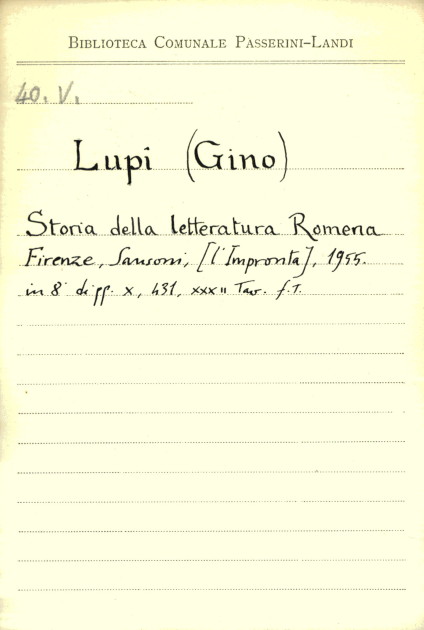 BIBLIOTECA COMUNALE PASSERINI-LANDI
40. V.
Lupi (Gino)
Storia della letteratura Romena
Firenze, Sansoni, [l'Impronta], 1955.
in 8° di pp. X, 431, XXXII Tav. f.t.